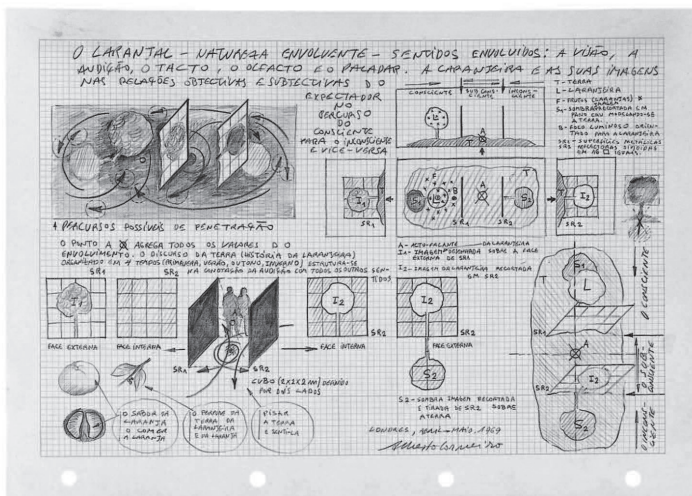 O LARANTAL – NATUREZA ENVOLVENTE – SENTIDOS ENVOLVIDOS: A VISÃO, A
AUDIÇÃO, O TACTO, O OLFACTO E O PALADAR. A LARANJEIRA E AS SUAS IMAGENS
NAS RELAÇÕES OBJECTIVAS E SUBJECTIVAS DO
EXPECTADOR
NO
PERCURSO
DO
CONSCIENTE
PARA O INCONSCIENTE
E VICE-VERSA
CONSCIENTE
SUBCONS
CIENTE
INCONS-
CIENTE
L
A
T
T – TERRA
L – LARANJEIRA
F – FRUTOS (LARANJAS)
S1 – SOMBRA RECORTADA EM
PANO CRU MOLDANDO-SE
À TERRA.
B – FOCO LUMINOSO ORIEN-
TADO PARA A LARANJEIRA
SR1 – SUPERFÍCIES METÁLICAS
SR2 REFLECTORAS DIVIDIDAS
EM 16 □ IGUAIS.
I1
SR1
T
F
S1
L
B
A
SR1
SR2
S2
T
I2
SR2
4 PERCURSOS POSSÍVEIS DE PENETRAÇÃO
O PONTO A AGREGA TODOS OS VALORES DO
ENVOLVIMENTO. O DISCURSO DA TERRA (HISTÓRIA DA LARANJEIRA)
ORGANIZADO EM 4 TEMPOS (PRIMAVERA, VERÃO, OUTONO, INVERNO) ESTRUTURA-SE
NA CONOTAÇÃO DA AUDIÇÃO COM TODOS OS OUTROS SEN-
TIDOS
A – ALTO-FALANTE DA LARANJEIRA
I1 – IMAGEM DESENHADA SOBRE A FACE
EXTERNA DE SR1
I2 – IMAGEM DA LARANJEIRA RECORTADA
EM SR2
SR1
SR2
I1
I2
SR2
I2
SR2
FACE EXTERNA
FACE INTERNA
SR1
SR2
FACE INTERNA
FACE EXTERNA
S2
CUBO (2x2x2 m) DEFINIDO
POR DOIS LADOS
O SABOR DA
LARANJA
O COMER
A LARANJA
O PERFUME DA
TERRA DA
LARANJEIRA
E DA LARANJA
PISAR
A TERRA
E SENTI-LA
S2 – SOMBRA IMAGEM RECORTADA
E TIRADA DE SR2 SOBRE
A TERRA
LONDRES, ABRIL-MAIO, 1969
Alberto Carneiro
S1
T
L
SR1
A
SR2
I2
S2
O CONSCIENTE
O SUB-
CONSCIENTE
O INCONS-
CIENTE